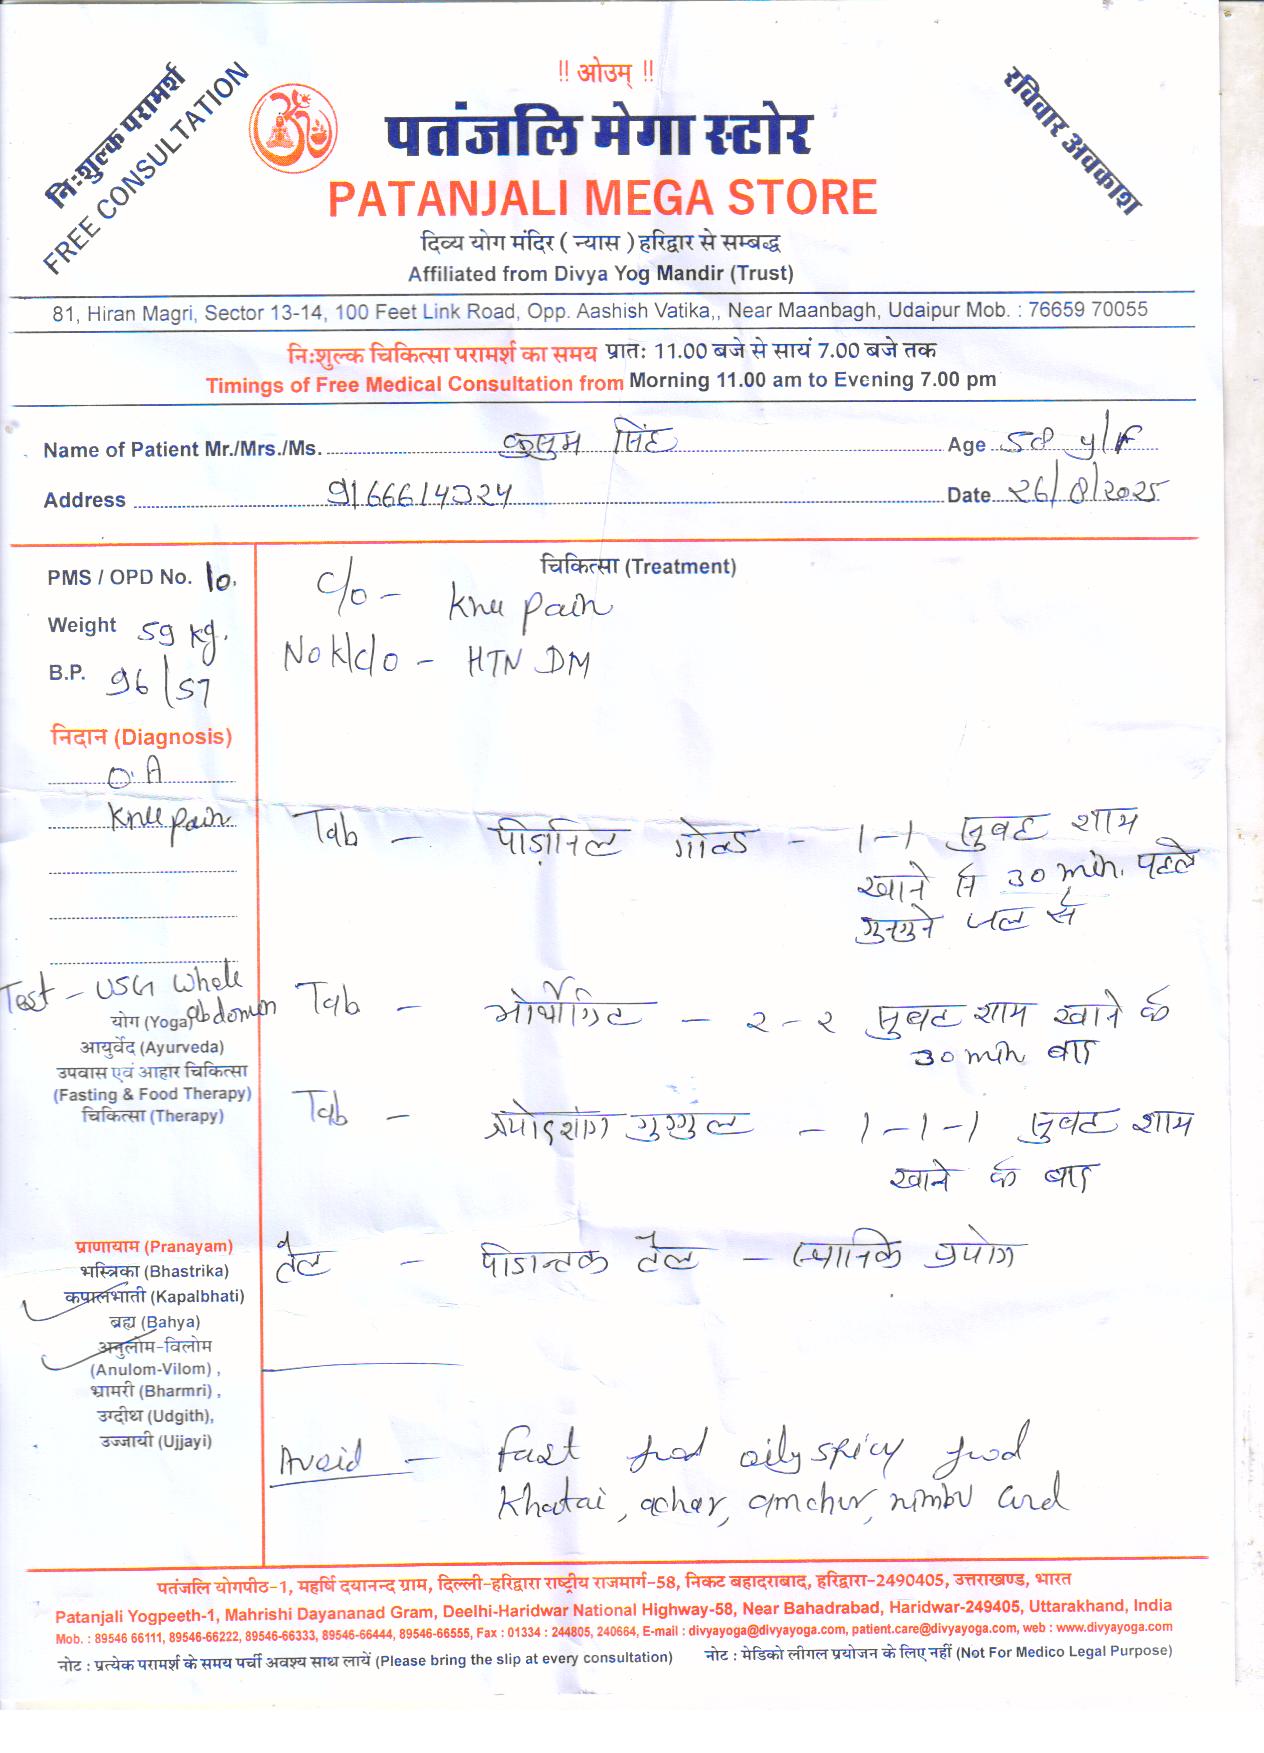 !! ओउम् !!
नि:शुल्क परामर्श
FREE CONSULTATION
रविवार अवकाश
पतंजलि मेगा स्टोर
PATANJALI MEGA STORE
दिव्य योग मंदिर ( न्यास ) हरिद्वार से सम्बद्ध
Affiliated from Divya Yog Mandir (Trust)
81, Hiran Magri, Sector 13-14, 100 Feet Link Road, Opp. Aashish Vatika,, Near Maanbagh, Udaipur Mob. : 76659 70055
नि:शुल्क चिकित्सा परामर्श का समय प्रात: 11.00 बजे से सायं 7.00 बजे तक
Timings of Free Medical Consultation from Morning 11.00 am to Evening 7.00 pm
Name of Patient Mr./Mrs./Ms. कुसुम सिंह Age 58 y/F
Address 9166614324 Date 26/8/2025
PMS / OPD No. 10.
Weight 59 kg.
B.P. 96/57
निदान (Diagnosis)
O.A
Knee pain
Test - USG Whole
abdomen
योग (Yoga)
आयुर्वेद (Ayurveda)
उपवास एवं आहार चिकित्सा
(Fasting & Food Therapy)
चिकित्सा (Therapy)
प्राणायाम (Pranayam)
भस्त्रिका (Bhastrika)
कपालभाती (Kapalbhati)
ब्रह्म (Bahya)
अनुलोम-विलोम
(Anulom-Vilom) ,
भ्रामरी (Bharmri) ,
उग्दीथ (Udgith),
उज्जायी (Ujjayi)
चिकित्सा (Treatment)
c/o - Knee pain
No k/c/o - HTN DM
Tab - पीड़ानिल गोल्ड - 1-1 सुबह शाम
खाने से 30 min. पहले
गुनगुने जल से
Tab - ऑर्थोग्रिट - २-२ सुबह शाम खाने के
30 min बाद
Tab - त्रयोदशांग गुग्गुल - 1-1-1 सुबह शाम
खाने के बाद
तैल - पीडान्तक तैल - स्थानिक प्रयोग
Avoid - fast food oily spicy food
Khatai, achar, amchur, nimbu curd
पतंजलि योगपीठ-1, महर्षि दयानन्द ग्राम, दिल्ली-हरिद्वारा राष्ट्रीय राजमार्ग-58, निकट बहादराबाद, हरिद्वारा-2490405, उत्तराखण्ड, भारत
Patanjali Yogpeeth-1, Mahrishi Dayananad Gram, Deelhi-Haridwar National Highway-58, Near Bahadrabad, Haridwar-249405, Uttarakhand, India
Mob. : 89546 66111, 89546-66222, 89546-66333, 89546-66444, 89546-66555, Fax : 01334 : 244805, 240664, E-mail : divyayoga@divyayoga.com, patient.care@divyayoga.com, web : www.divyayoga.com
नोट : प्रत्येक परामर्श के समय पर्ची अवश्य साथ लायें (Please bring the slip at every consultation) नोट : मेडिको लीगल प्रयोजन के लिए नहीं (Not For Medico Legal Purpose)